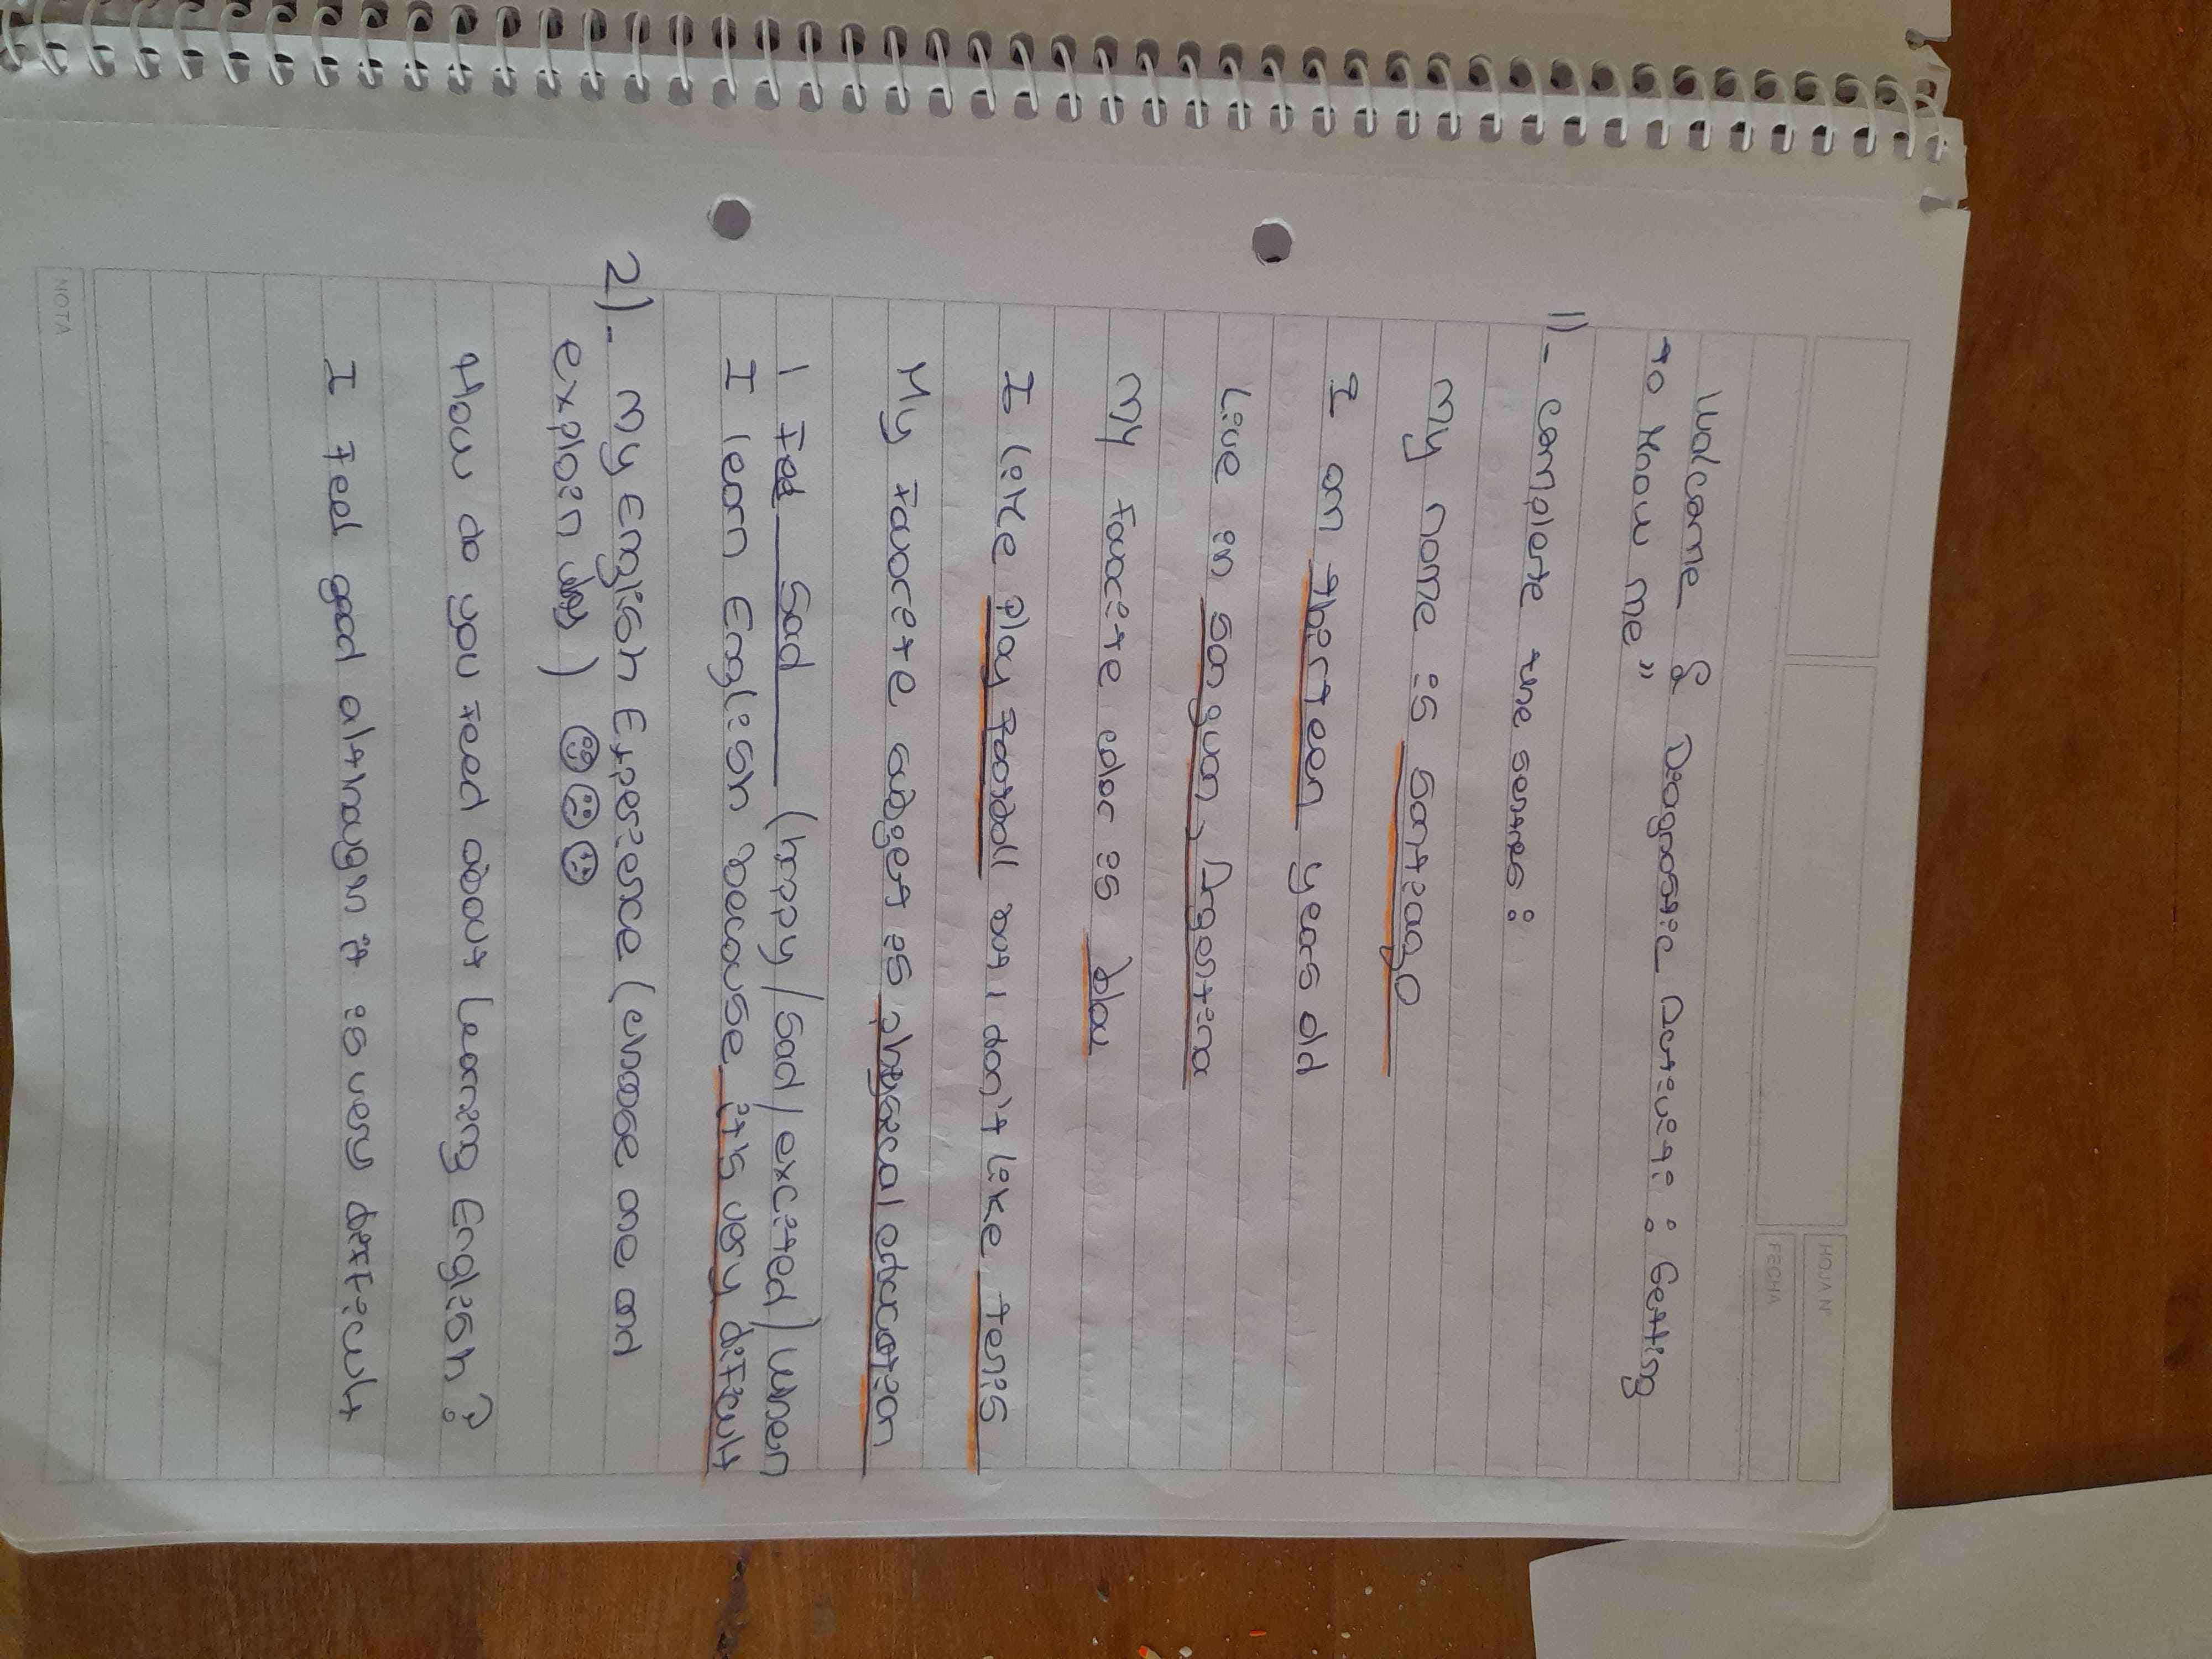 HOJA N°
FECHA
Walcome & Diagnostic Activiti: Getting
to Know me"
1)- complete the sentnes:
My name is Santiago
I am thirteen years old
Live in San guan, Argentina
My favorite color is blou
I like play football but I don't like tenis
My favorite subget is physical education
I feel Sad (happy/sad/excited) when
I learn English because it's very difficult
2)- My English Experience (choose one and
explain why)
How do you feed about learning English?
I feel good although it is very difficult
NOTA